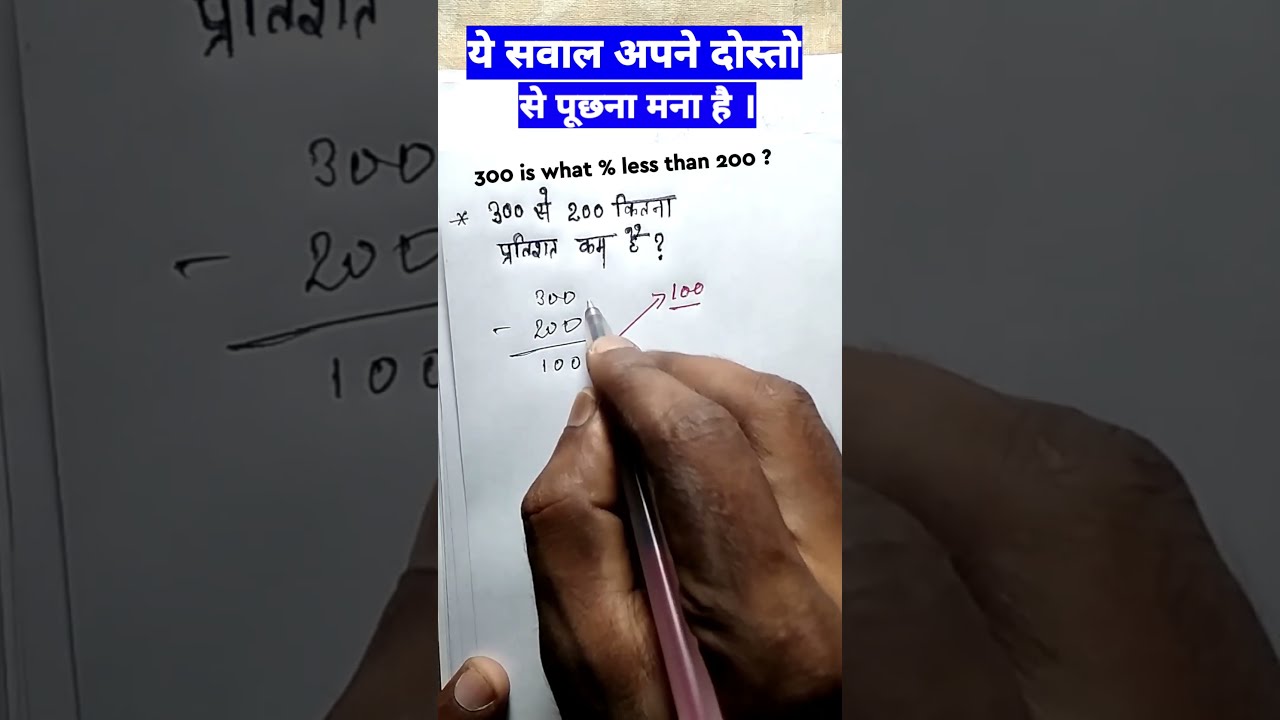 ये सवाल अपने दोस्तो
से पूछना मना है ।
300 is what % less than 200 ?
* 300 से 200 कितना
प्रतिशत कम है ?
300
- 200
100
100
प्रतिशत
300
- 200
100